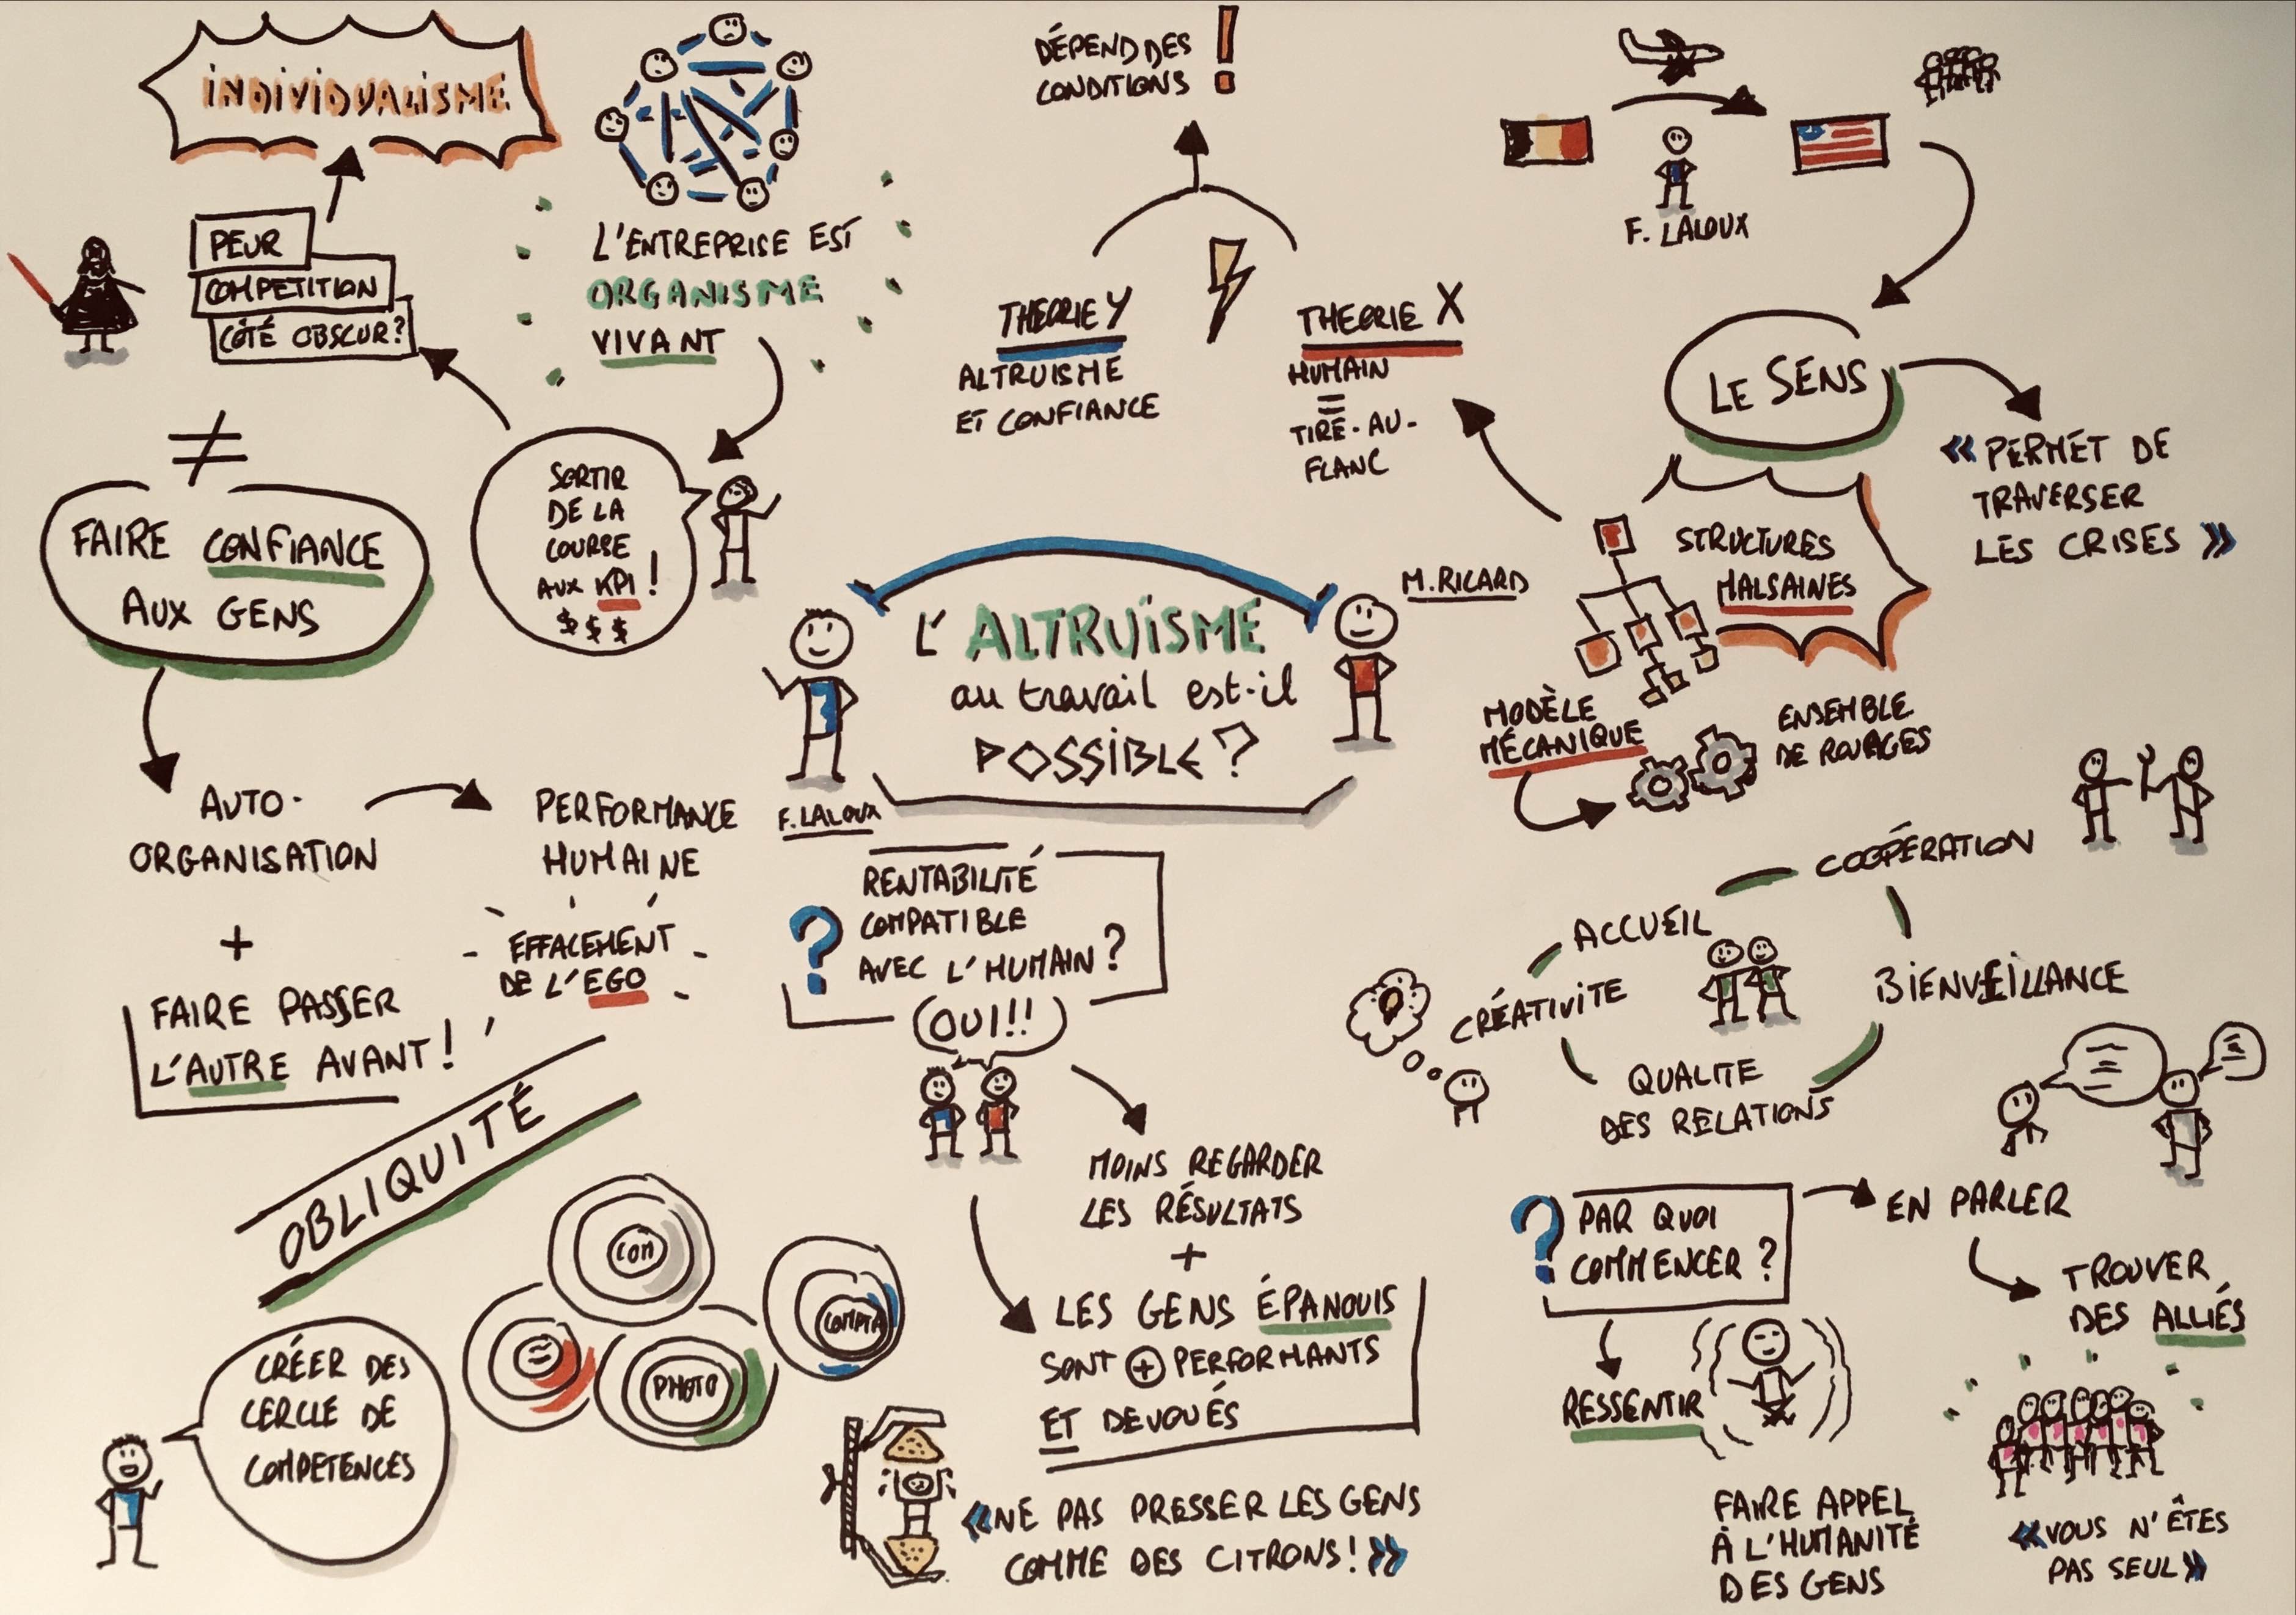 INDIVIDUALISME
PEUR
COMPETITION
CÔTÉ OBSCUR?
L'ENTREPRISE EST
ORGANISME
VIVANT
SORTIR
DE LA
COURSE
AUX KPI!
$$$
≠
FAIRE CONFIANCE
AUX GENS
AUTO-
ORGANISATION
PERFORMANCE
HUMAINE
+
FAIRE PASSER
L'AUTRE AVANT!
EFFACEMENT
DE L'EGO
OBLIQUITÉ
CRÉER DES
CERCLE DE
COMPETENCES
COM
PHOTO
COMPTA
DÉPEND DES
CONDITIONS !
THEORIE Y
ALTRUISME
ET CONFIANCE
THEORIE X
HUMAIN
=
TIRE-AU-
FLANC
L'ALTRUÏSME
au travail est-il
POSSIBLE?
F. LALOUX
M. RICARD
? RENTABILITÉ
COMPATIBLE
AVEC L'HUMAIN?
OUI!!
MOINS REGARDER
LES RÉSULTATS
+
LES GENS ÉPANOUIS
SONT + PERFORMANTS
ET DEVOUÉS
«NE PAS PRESSER LES GENS
COMME DES CITRONS!»
F. LALOUX
LE SENS
« PERMET DE
TRAVERSER
LES CRISES »
STRUCTURES
MALSAINES
MODÈLE
MÉCANIQUE
ENSEMBLE
DE ROUAGES
COOPÉRATION
ACCUEIL
CRÉATIVITE
BIENVEILLANCE
QUALITE
DES RELATIONS
? PAR QUOI
COMMENCER?
EN PARLER
TROUVER
DES ALLIÉS
RESSENTIR
FAIRE APPEL
À L'HUMANITÉ
DES GENS
«VOUS N'ÊTES
PAS SEUL»